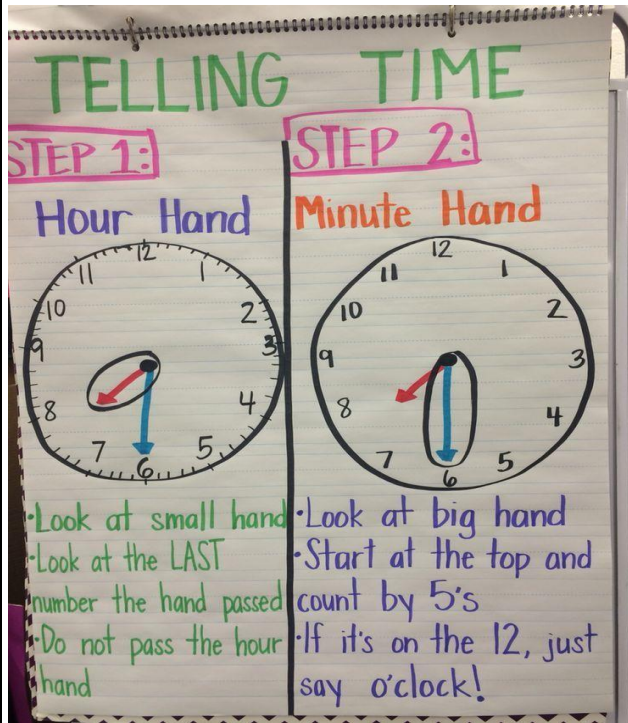 TELLING TIME
STEP 1:
Hour Hand
12
11
1
10
2
9
3
8
4
7
5
6
•Look at small hand
•Look at the LAST
number the hand passed
•Do not pass the hour
hand
STEP 2:
Minute Hand
12
11
1
10
2
9
3
8
4
7
5
6
•Look at big hand
•Start at the top and
count by 5's
•If it's on the 12, just
say o'clock!